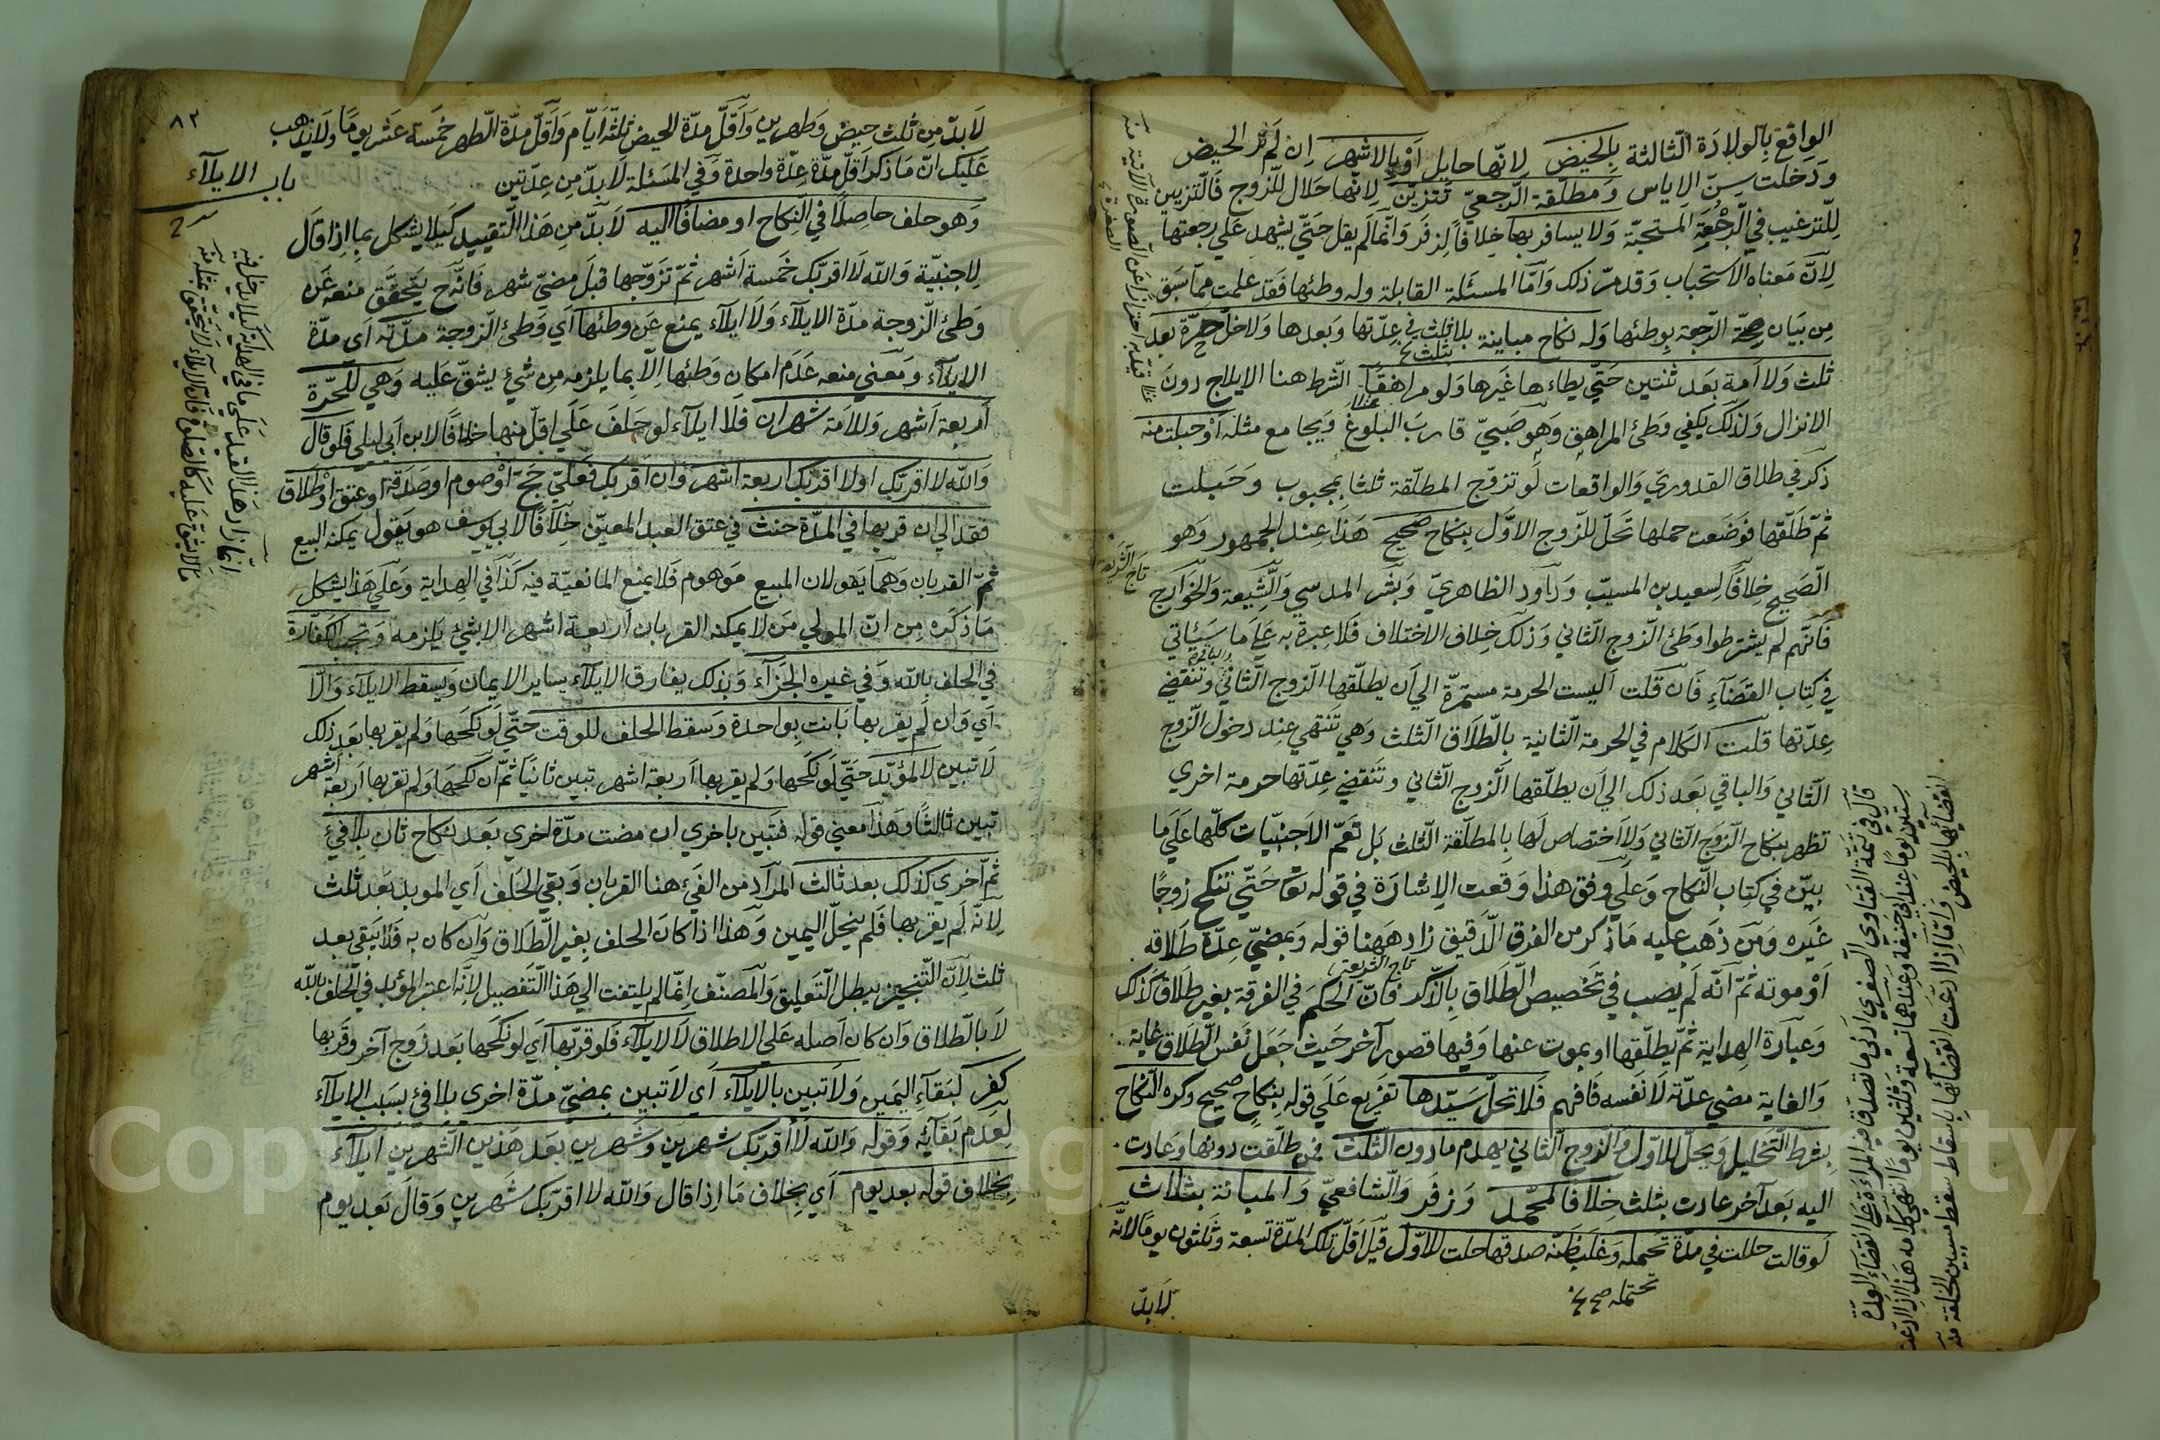 الواقع بالولادة الثالثة بالحيض لانها حايل او بالاشهر ان لم تر الحيض
ودخلت سن الاياس ومطلقة الرجعي تتزين لانها حلال للزوج فالتزيين
للترغيب في الرجعة المستحبة ولا يسافر بها خلافا لزفر وانما لم يقل حتى يشهد على رجعتها
لان معناه الاستحباب وقد مر ذلك واما المسئلة القابلة وله وطئها فقد علمت مما سبق
من بيان صحة الرجعة بوطئها وله نكاح مباينة بلا ثلث في عدتها وبعدها ولا تحل حرة بعد
ثلث ولا امة بعد ثنتين حتى يطاءها غيرها ولو مراهقا الشرط هنا الايلاج دون
الانزال ولذلك يكفي وطئ المراهق وهو صبي قارب البلوغ ويجامع مثله او حبلت منه
ذكر في طلاق القدوري والواقعات لو تزوج المطلقة ثلثا بمجبوب وحبلت
ثم طلقها فوضعت حملها تحل للزوج الاول بنكاح صحيح هذا عند الجمهور وهو
الصحيح خلافا لسعيد بن المسيب وداود الظاهري وبشر المدسي والشيعة والخوارج
فانهم لم يشترطوا وطئ الزوج الثاني وذلك خلاف الاختلاف فلا عبرة به على ما سيئاتي
في كتاب القضاء فان قلت اليست الحرمة مستمرة الى ان يطلقها الزوج الثاني وتنقضي
عدتها قلت الكلام في الحرمة الثانية بالطلاق الثلث وهي تنتهي عند دخول الزوج
الثاني والباقي بعد ذلك الى ان يطلقها الزوج الثاني وتنقضي عدتها حرمة اخرى
تظهر بنكاح الزوج الثاني ولا اختصاص لها بالمطلقة الثلث بل تعم الاجنبيات كلها على ما
بين في كتاب النكاح وعلى وفق هذا وقعت الاشارة في قوله تعا حتى تنكح زوجا
غيره ومن ذهب عليه ما ذكر من الفرق الدقيق زاد ههنا قوله وبمضي عدة طلاقه
او موته ثم انه لم يصب في تخصيص الطلاق بالذكر فان الحكم في الفرقة بغير طلاق كذلك
وعبارة الهداية ثم يطلقها او يموت عنها وفيها قصور آخر حيث جعل نفس الطلاق غاية
والغاية مضي عدته لا نفسه فافهم فلا تحل سيدها تفريع على قوله بنكاح صحيح وكره النكاح
بشرط التحليل ويحل للاول والزوج الثاني يهدم ما دون الثلث فمن طلقت دونها وعادت
اليه بعد آخر عادت بثلث خلافا لمحمد وزفر والشافعي والمبانة بثلاث
لو قالت حللت في مدة تحتمله وغلب ظنه صدقها حلت للاول قيل اقل تلك المدة تسعة وثلثون يوما لانه
تحتمله صح
لا بد
تاج الشريعة
تاج الشريعة
قال في تتمة الفتاوى الصغرى ادنى ما تصدق فيه المراة على انقضاء العدة
ستين يوما عند ابي حنيفة وعندهما تسعة وثلثين يوما انتهى كلامه هذا اذا ادعت
انقضائها بالحيض واما اذا ادعت انقضائها باسقاط سقط مستبين الخلقة منه
٨٣
باب الايلاء
لا بد من ثلث حيض وطهرين واقل مدة الحيض ثلثة ايام واقل مدة الطهر خمسة عشر يوما ولا يذهب
عليك ان ما ذكر اقل مدة عدة واحدة وفي المسئلة لا بد من عدتين
وهو حلف حاصلا في النكاح او مضافا اليه لا بد من هذا التقييد كيلا يشكل بما اذا قال
لاجنبية والله لا اقربك خمسة اشهر ثم تزوجها قبل مضي شهر فانه ح يتحقق منعه عن
وطئ الزوجة مدة الايلاء ولا ايلاء يمنع عن وطئها اي وطئ الزوجة مدته اي مدة
الايلاء ومعنى منعه عدم امكان وطئها الا بما يلزمه من شئ يشق عليه وهي للحرة
اربعة اشهر وللامة شهران فلا ايلاء لو حلف على اقل منها خلافا لابن ابي ليلى فلو قال
والله لا اقربك او لا اقربك اربعة اشهر وان اقربك فعلي حج او صوم او صدقة او عتق او طلاق
فقد الى ان قربها في المدة حنث في عتق العبد المعين خلافا لابي يوسف هو يقول يمكنه البيع
ثم القربان وهما يقولان المبيع موهوم فلا يمنع المانعية فيه كذا في الهداية وعلى هذا يشكل
ما ذكره من ان المولي من لا يمكنه القربان اربعة اشهر الا بشئ يلزمه وتجب الكفارة
في الحلف بالله وفي غيره الجزاء وبذلك يفارق الايلاء ساير الايمان ويسقط الايلاء والا
اي وان لم يقربها بانت بواحدة وسقط الحلف للوقت حتى لو نكحها ولم يقربها بعد ذلك
لا تبين لا المؤبد حتى لو نكحها ولم يقربها اربعة اشهر تبين ثانيا ثم ان نكحها ولم يقربها اربعة اشهر
تبين ثالثا وهذا معنى قوله فتبين باخرى ان مضت مدة اخرى بعد نكاح ثان بلا فئ
ثم اخرى كذلك بعد ثالث المراد من الفئ هنا القربان وبقي الحلف اي الموبد بعد ثلث
لانه لم يقربها فلم ينحل اليمين وهذا اذا كان الحلف بغير الطلاق وان كان به فلا يبقى بعد
ثلث لان التنجيز يبطل التعليق والمصنف انما لم يلتفت الى هذا التفصيل لانه اعتبر المؤبد في الحلف بالله
لا بالطلاق وان كان اصله على الاطلاق لا الايلاء فلو قربها اي لو نكحها بعد زوج آخر وقربها
كفر لبقاء اليمين ولا تبين بالايلاء اي لا تبين بمضي مدة اخرى بلا فئ بسبب الايلاء
لعدم بقائه وقوله والله لا اقربك شهرين وشهرين بعد هذين الشهرين ايلاء
بخلاف قوله بعد يوم اي بخلاف ما اذا قال والله لا اقربك شهرين وقال بعد يوم
Copyright © King Saud University